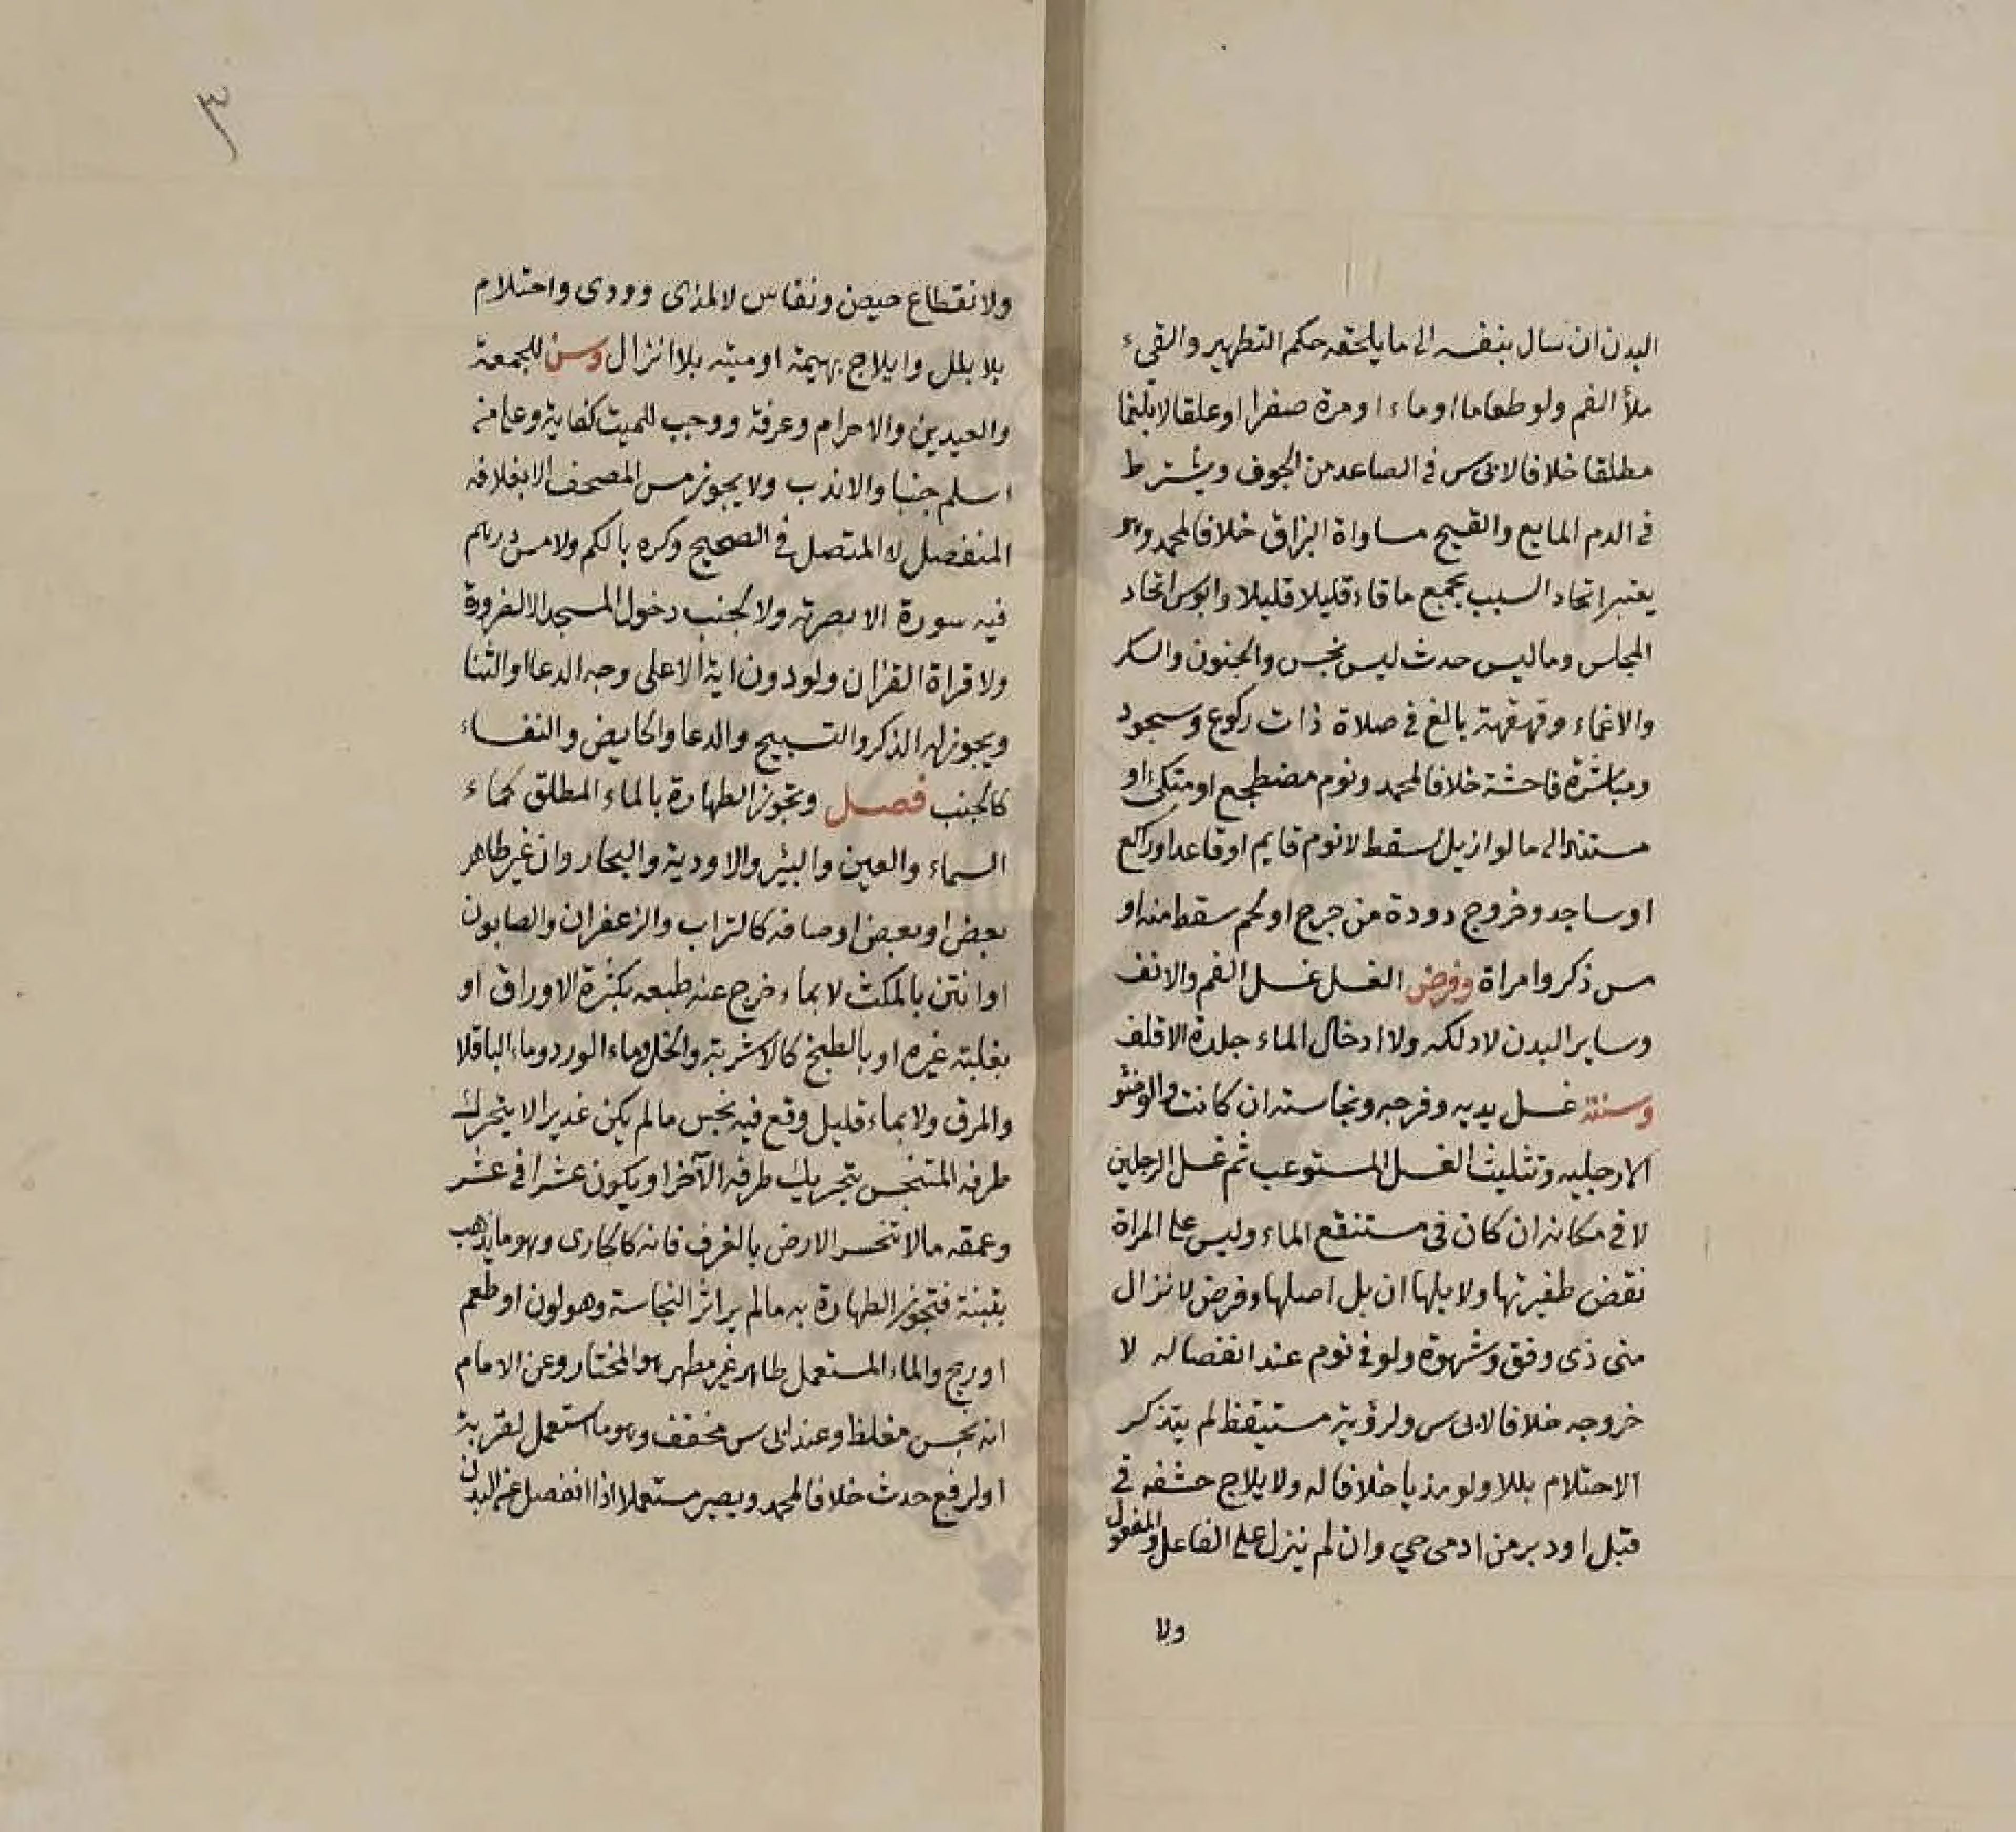 البدن ان سال بنفسه الى ما يلحقه حكم التطهير والقيء
ملأ الفم ولو طعاما او ماء او مرة صفرا او علقا لا بلغما
مطلقا خلافا لابى س فى الصاعد من الجوف ويشترط
فى الدم المايع والقيح مساواة البزاق خلافا لمحمد وهو
يعتبر اتحاد السبب بجمع ما قاء قليلا قليلا وابو س اتحاد
المجلس وما ليس حدث ليس نجس والجنون والسكر
والاغماء وقهقهة بالغ فى صلاة ذات ركوع وسجود
ومباشرة فاحشة خلافا لمحمد ونوم مضطجع او متكئ او
مستند الى ما لو ازيل لسقط لا نوم قايم او قاعد او راكع
او ساجد وخروج دودة من جرح او لحم سقط منه او
مس ذكر وامراة وفرض الغسل غسل الفم والانف
وساير البدن لا دلكه ولا ادخال الماء جلدة الاقلف
وسنته غسل يديه وفرجه ونجاسته ان كانت والوضو
الا رجليه وتثليث الغسل المستوعب ثم غسل الرجلين
لا فى مكانه ان كان فى مستنقع الماء وليس على المراة
نقض ظفيرتها ولا بلها ان بل اصلها وفرض لانزال
منى ذى دفق وشهوة ولو فى نوم عند انفصاله لا
خروجه خلافا لابى س ولرؤية مستيقظ لم يتذكر
الاحتلام بللا ولو مذيا خلافا له ولايلاج حشفه فى
قبل او دبر من ادمى حي وان لم ينزل على الفاعل والمفعول
ولا
٣
ولانقطاع حيض ونفاس لا لمذى وودى واحتلام
بلا بلل وايلاج بهيمة او ميته بلا انزال وسن للجمعة
والعيدين والاحرام وعرفة ووجب للميت كفاية وعلى من
اسلم جنبا والا ندب ولا يجوز مس المصحف الا بغلافه
المنفصل لا المتصل فى الصحيح وكره بالكم ولا مس درهم
فيه سورة الا بصرته ولا لجنب دخول المسجد الا لضرورة
ولا قراة القران ولو دون اية الا على وجه الدعا او الثنا
ويجوز له الذكر والتسبيح والدعا والحايض والنفساء
كالجنب فصل وتجوز الطهارة بالماء المطلق كماء
السماء والعين والبئر والاودية والبحار وان غير طاهر
بعض او بعض اوصافه كالتراب والزعفران والصابون
او انتن بالمكث لا بماء خرج عنه طبعه بكثرة الاوراق او
بغلبة غيره او بالطبخ كالاشربة والخل وماء الورد وماء الباقلا
والمرق ولا بماء قليل وقع فيه نجس ما لم يكن غديرا لا يتحرك
طرفه المتنجس بتحريك طرفه الآخر او يكون عشرا فى عشر
وعمقه ما لا تنحسر الارض بالغرف فانه كالجارى وهو ما يذهب
بتبنة فتجوز الطهارة به ما لم ير اثر النجاسة وهو لون او طعم
او ريح والماء المستعمل طاهر غير مطهر هو المختار وعن الامام
انه نجس مغلظ وعند ابى س مخفف وهو ما استعمل لقربة
او لرفع حدث خلافا لمحمد ويصير مستعملا اذا انفصل عن البدن